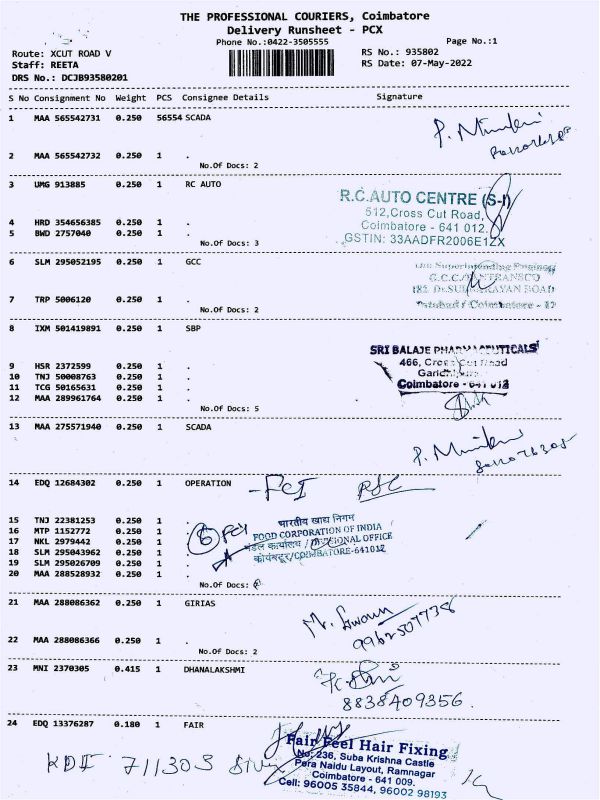 THE PROFESSIONAL COURIERS, Coimbatore
Delivery Runsheet - PCX
Phone No.:0422-3505555
Page No.:1
Route: XCUT ROAD V
RS No.: 935802
Staff: REETA
RS Date: 07-May-2022
DRS No.: DCJB93580201
S No Consignment No Weight PCS Consignee Details Signature
1 MAA 565542731 0.250 56554 SCADA
2 MAA 565542732 0.250 1 .
No.Of Docs: 2
3 UMG 913885 0.250 1 RC AUTO
R.C.AUTO CENTRE (S-I)
512,Cross Cut Road,
Coimbatore - 641 012.
GSTIN: 33AADFR2006E1ZX
4 HRD 354656385 0.250 1 .
5 BWD 2757040 0.250 1 .
No.Of Docs: 3
6 SLM 295052195 0.250 1 GCC
Superintending Engineer
7 TRP 5006120 0.250 1 .
No.Of Docs: 2
8 IXM 501419891 0.250 1 SBP
SRI BALAJE PHARMACEUTICALS
466, Cross Cut Road
Coimbatore - 641 012
9 HSR 2372599 0.250 1 .
10 TNJ 50008763 0.250 1 .
11 TCG 50165631 0.250 1 .
12 MAA 289961764 0.250 1 .
No.Of Docs: 5
13 MAA 275571940 0.250 1 SCADA
14 EDQ 12684302 0.250 1 OPERATION
FCI
15 TNJ 22381253 0.250 1 .
16 MTP 1152772 0.250 1 .
17 NKL 2979442 0.250 1 .
18 SLM 295043962 0.250 1 .
19 SLM 295026709 0.250 1 .
20 MAA 288528932 0.250 1 .
No.Of Docs:
भारतीय खाद्य निगम
FOOD CORPORATION OF INDIA
मंडल कार्यालय / DIVISIONAL OFFICE
कोयंबटूर/COIMBATORE-641012
21 MAA 288086362 0.250 1 GIRIAS
9962507738
22 MAA 288086366 0.250 1 .
No.Of Docs: 2
23 MNI 2370305 0.415 1 DHANALAKSHMI
8838409356
24 EDQ 13376287 0.180 1 FAIR
Fair Feel Hair Fixing
No: 236, Suba Krishna Castle
Pera Naidu Layout, Ramnagar
Coimbatore - 641 009.
Cell: 96005 35844, 96002 98193
711303